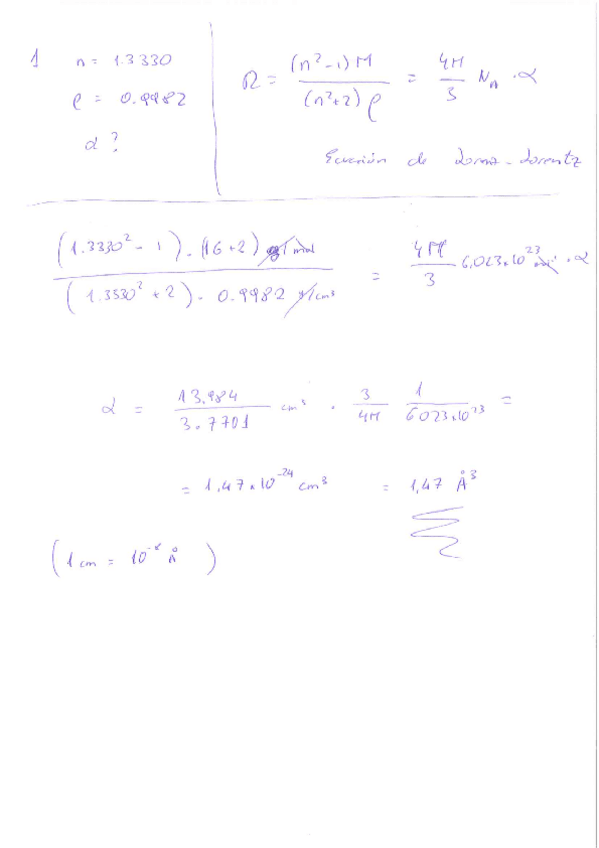 1 n = 1.3330
ρ = 0.9982
α ?
R = (n²-1) M / (n²+2) ρ = 4π/3 N_A · α
Ecuación de Lorenz-Lorentz
(1.3330² - 1) · (16+2) g/mol / (1.3330² + 2) · 0.9982 g/cm³ = 4π/3 6,023·10²³ · α
α = 13.984 / 3.7701 cm³ · 3/4π 1/6023·10²³ =
= 1,47·10⁻²⁴ cm³ = 1,47 Å³
(1 cm = 10⁻⁸ Å)